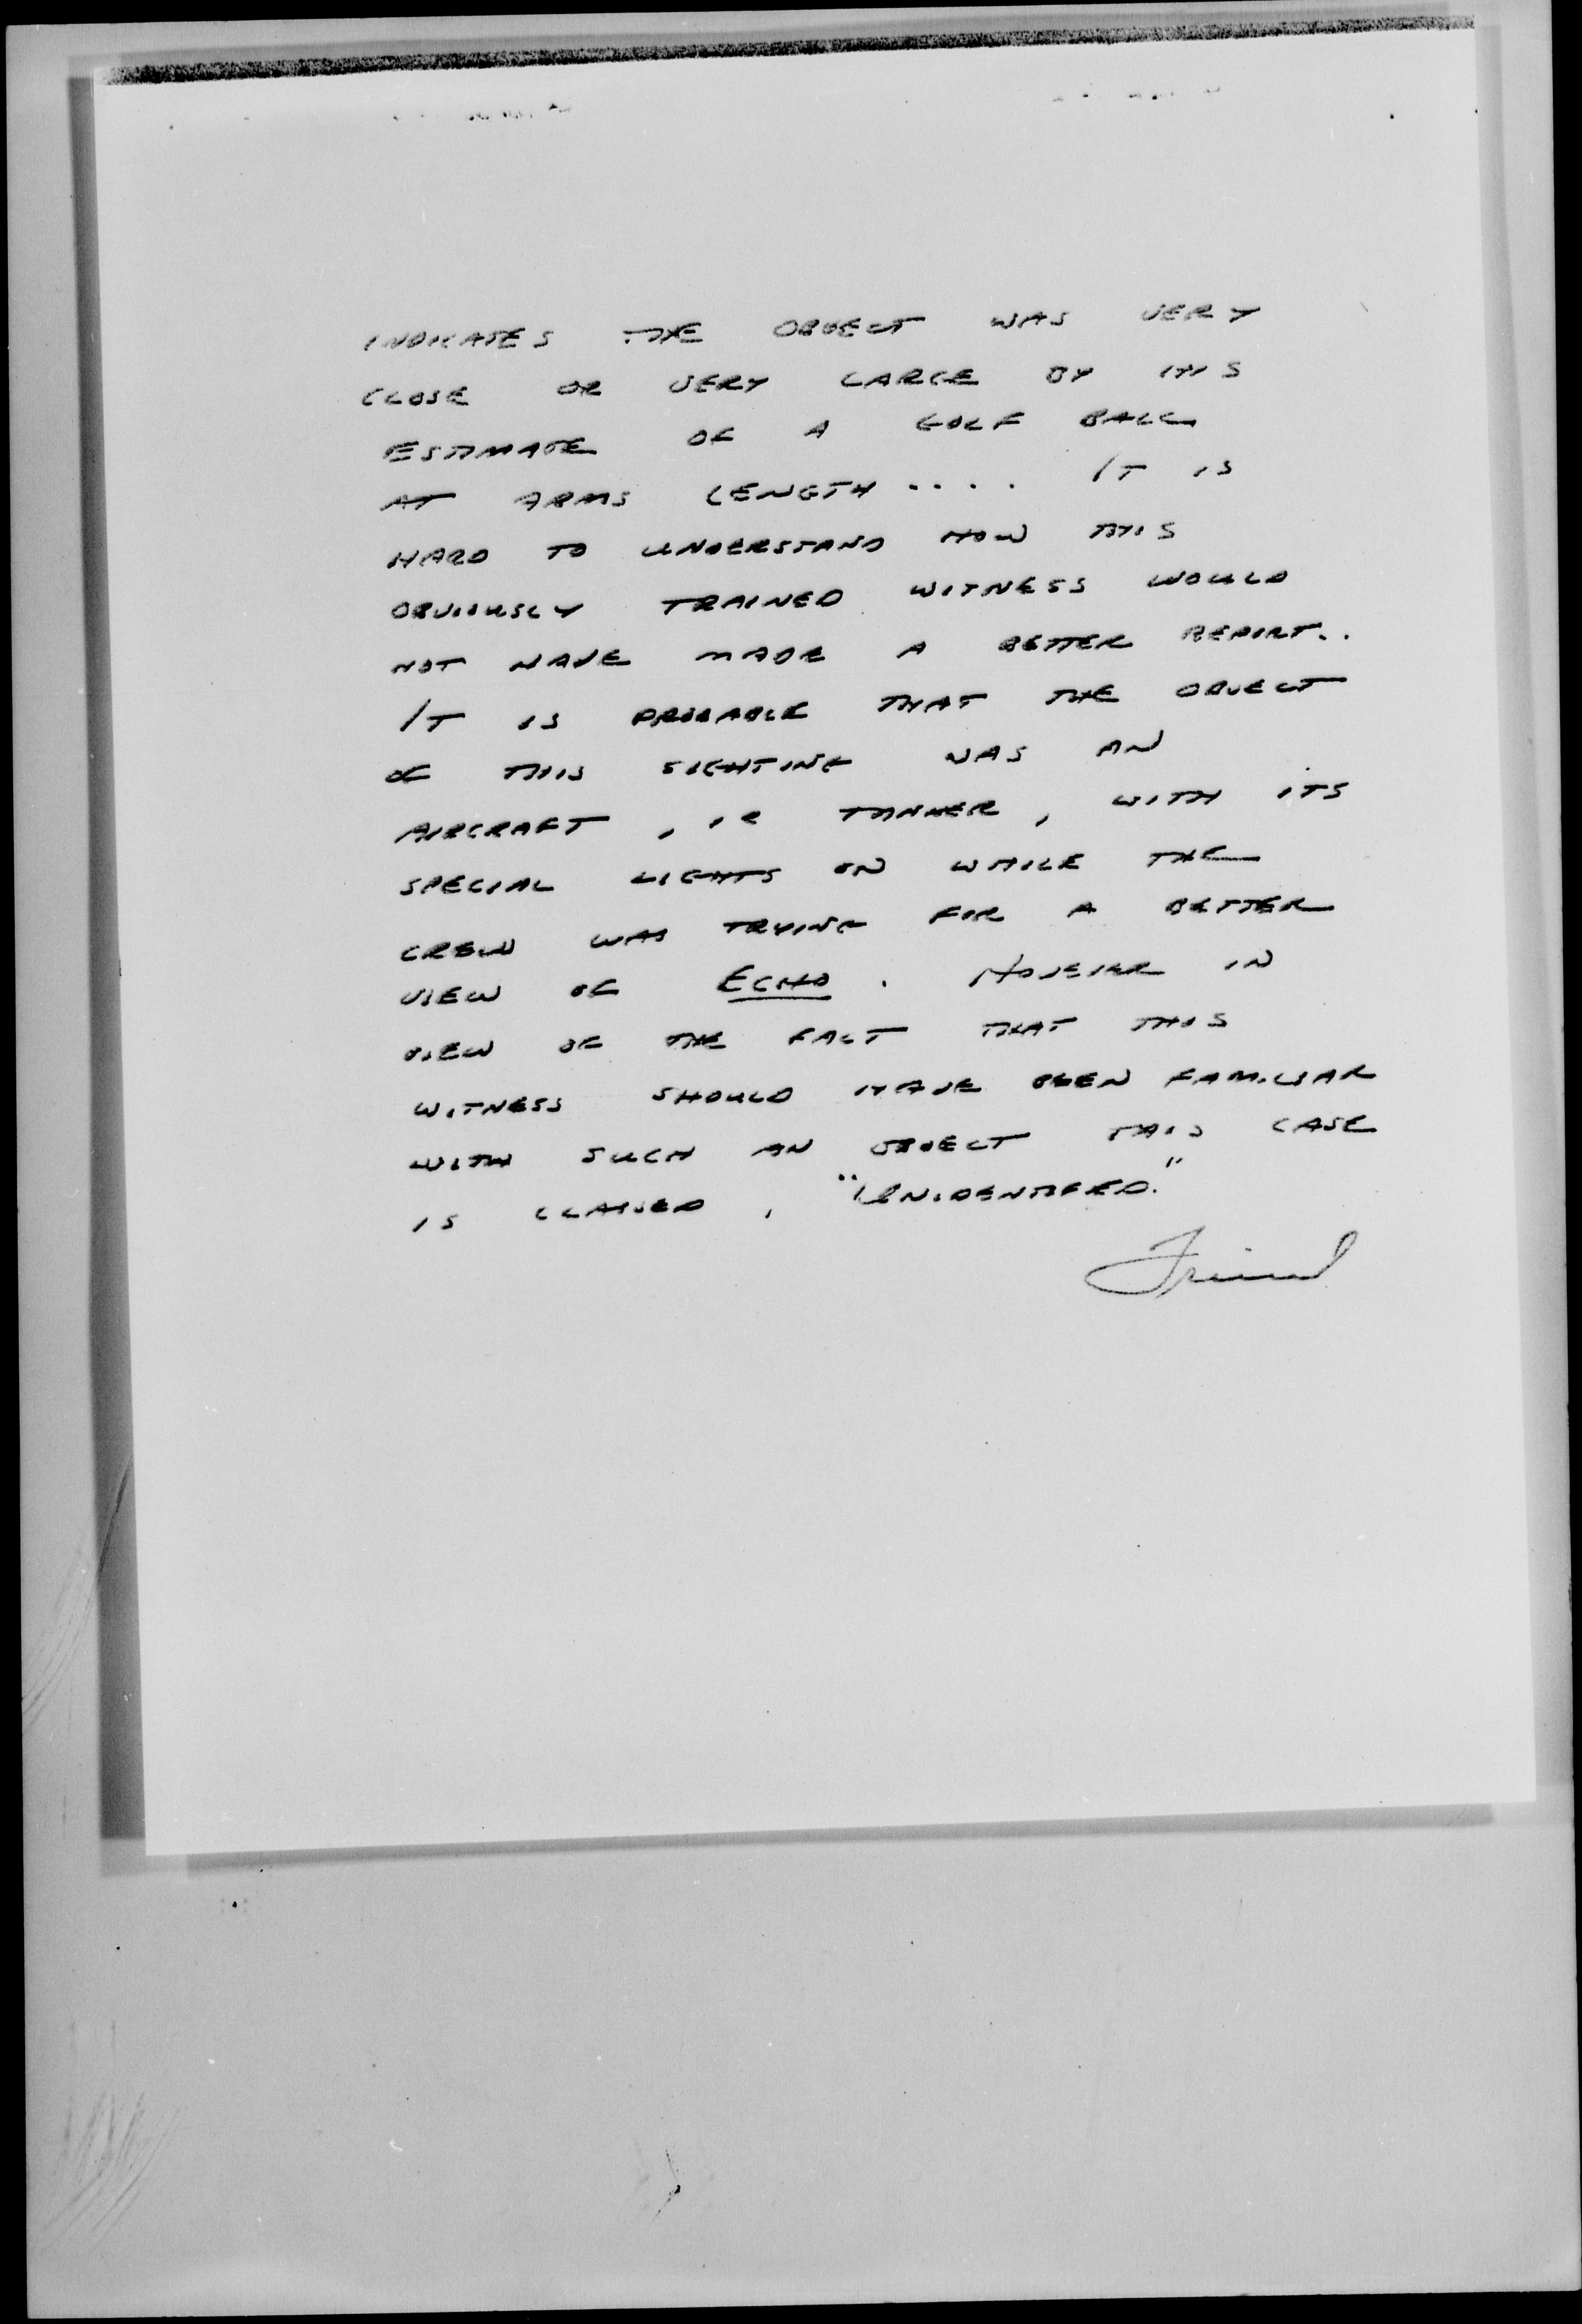 INDICATES THE OBJECT WAS VERY
CLOSE OR VERY LARGE BY HIS
ESTIMATE OF A GOLF BALL
AT ARMS LENGTH .... IT IS
HARD TO UNDERSTAND HOW THIS
OBVIOUSLY TRAINED WITNESS WOULD
NOT HAVE MADE A BETTER REPORT..
IT IS PROBABLE THAT THE OBJECT
OF THIS SIGHTING WAS AN
AIRCRAFT, IE TANKER, WITH ITS
SPECIAL LIGHTS ON WHILE THE
CREW WAS TRYING FOR A BETTER
VIEW OF ECHO. HOWEVER IN
VIEW OF THE FACT THAT THIS
WITNESS SHOULD HAVE BEEN FAMILIAR
WITH SUCH AN OBJECT THIS CASE
IS CLASSED, "UNIDENTIFIED."
Friend